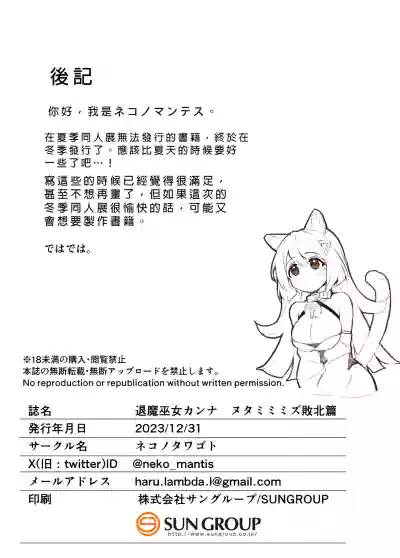 後記
你好，我是ネコノマンテス。
在夏季同人展無法發行的書籍，終於在
冬季發行了。應該比夏天的時候要好
一些了吧…！
寫這些的時候已經覺得很滿足，
甚至不想再畫了，但如果這次的
冬季同人展很愉快的話，可能又
會想要製作書籍。
ではでは。
※18未満の購入・閲覧禁止
本誌の無断転載・無断アップロードを禁止します。
No reproduction or republication without written permission.
誌名 退魔巫女カンナ ヌタミミズ敗北篇
発行年月日 2023/12/31
サークル名 ネコノタワゴト
X(旧：twitter)ID @neko_mantis
メールアドレス haru.lambda.l@gmail.com
印刷 株式会社サングループ/SUNGROUP
SUN GROUP